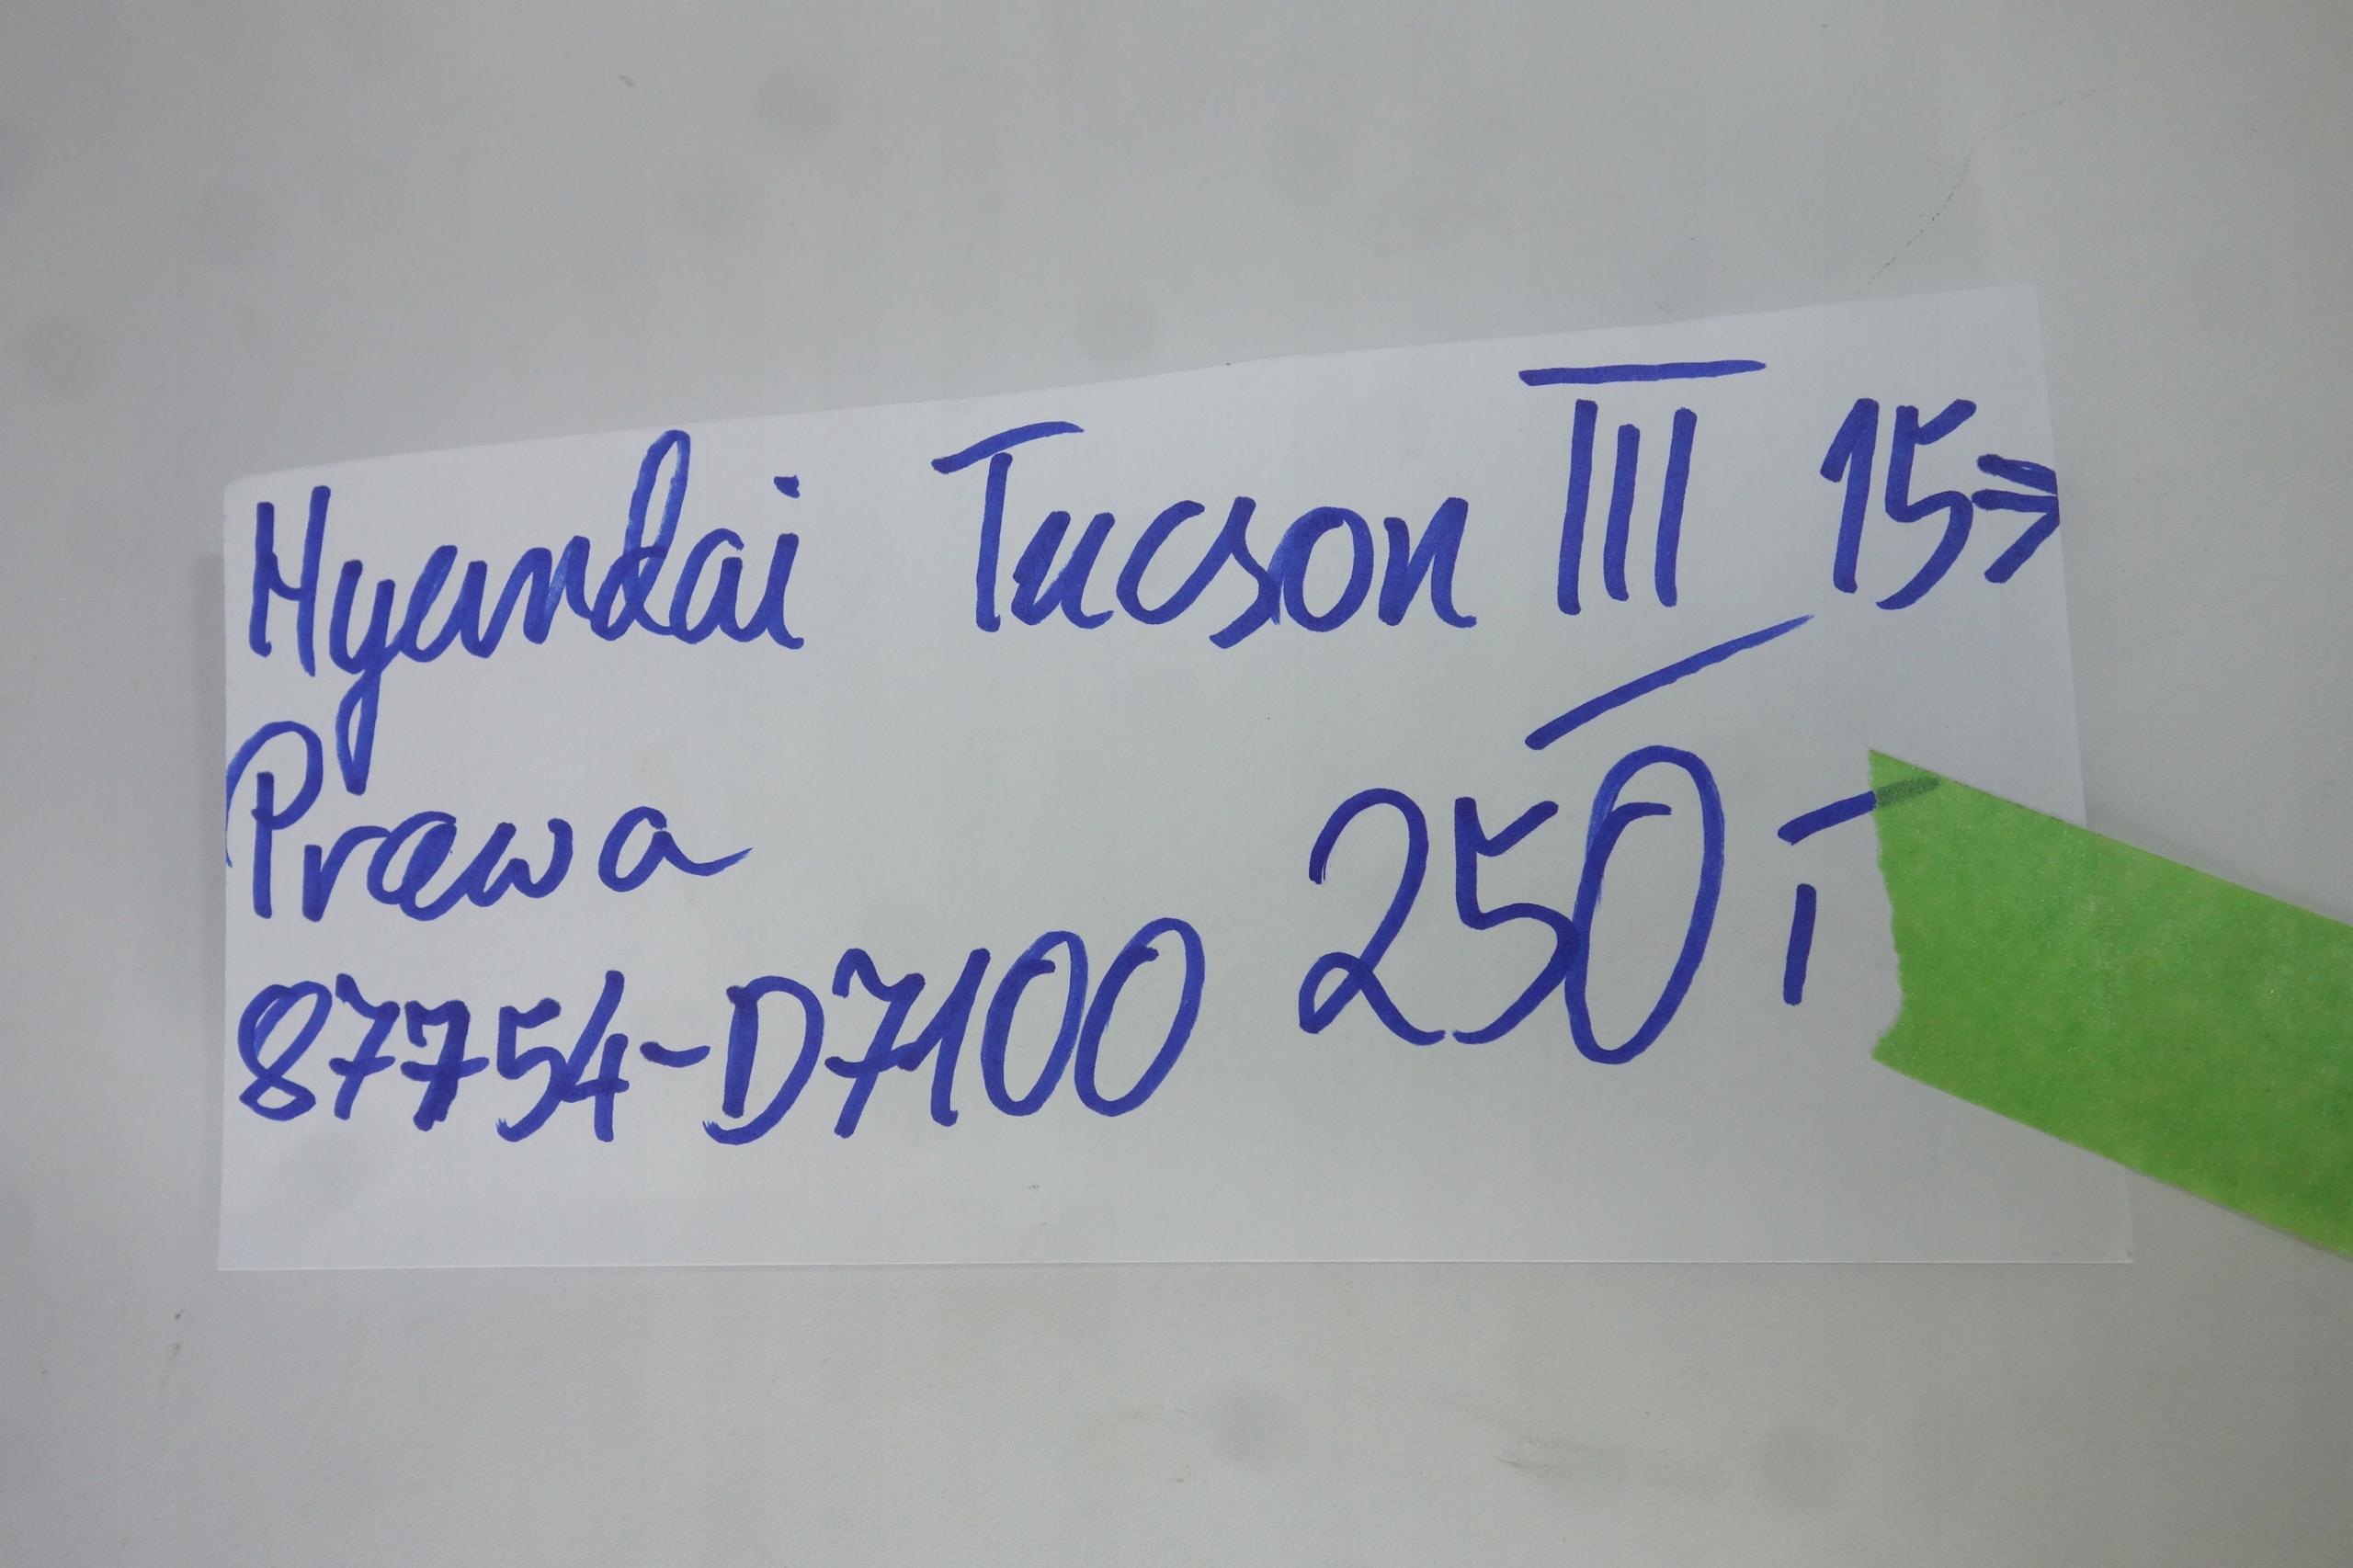 Hyundai Tucson III 15=>
Prawa 250 T
87754-D7100